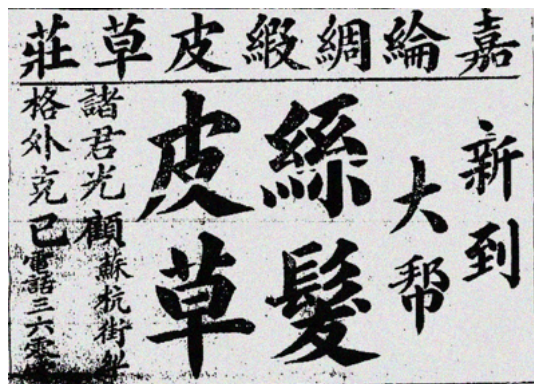 嘉綸綢緞皮草莊
新到
大帮
絲髮
皮草
諸君光顧 蘇杭街
格外克己 電話三六零